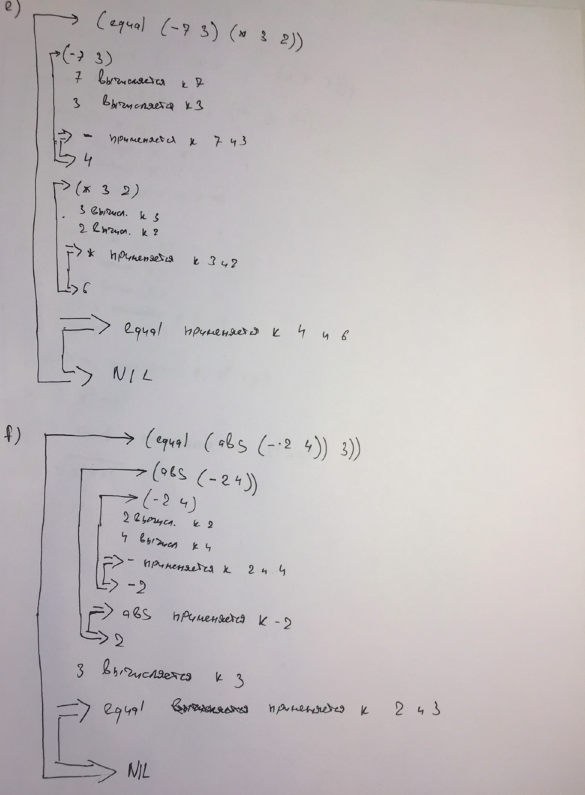 e)
(equal (-7 3) (* 3 2))
(-7 3)
7 вычисляется к 7
3 вычисляется к 3
- применяется к 7 и 3
4
(* 3 2)
3 вычисл. к 3
2 вычисл. к 2
* применяется к 3 и 2
6
equal применяется к 4 и 6
NIL
f)
(equal (abs (- 2 4)) 3))
(abs (-2 4))
(-2 4)
2 вычисл. к 2
4 вычисл к 4
- применяется к 2 и 4
-2
abs применяется к -2
2
3 вычисляется к 3
equal применяется к 2 и 3
NIL